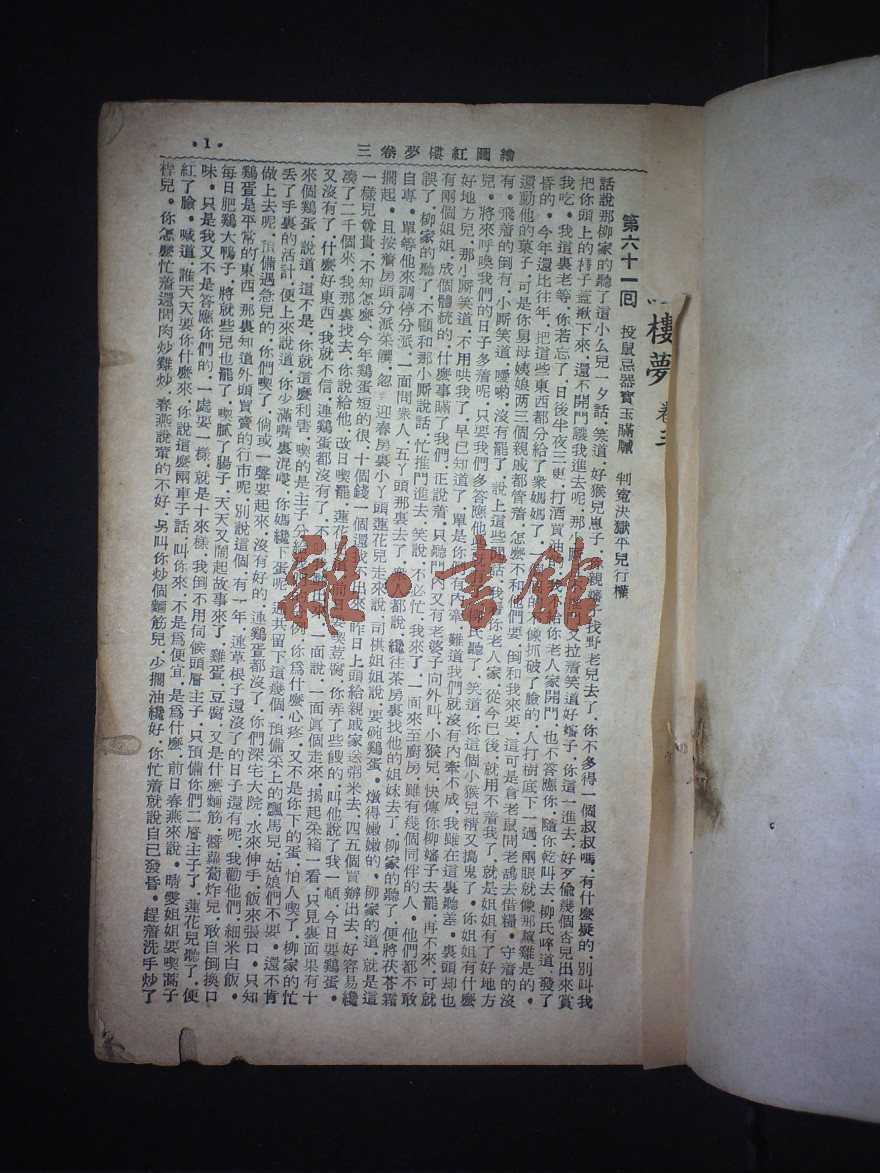 繪圖紅樓夢卷三
•1•
樓夢 卷三
第六十一回 投鼠忌器寶玉瞞贓 判寃決獄平兒行權
話說那柳家的聽了這小么兒一夕話．笑道．好猴兒崽子．親嬸子找野老兒去了．你不多得一個叔叔嗎．有什麼疑的．別叫我
把你頭上的榪子蓋揪下來．還不開門讓我進去呢．那小廝且又拉着笑道好嬸子．你這一進去．好歹偷幾個杏兒出來賞
我吃．我這裏老等．你若忘了．日後半夜三更．打酒買油
給你老人家開門．也不答應你．隨你乾叫去．柳氏啐道．發了
昏的．今年還比往年．把這些東西都分給了衆媽媽了．
的不像抓破了臉的．人打樹底下一過．兩眼就像那黧雞是的．
還動他的菓子．可是你舅母姨娘两三個親戚都管着．怎麼不和他們要．倒和我來要．這可是倉老鼠問老鴰去借糧．守着的沒
有．飛着的倒有．小厮笑道．噯喲．沒有罷了．說上這些閒話．我
你老人家．從今已後．就用不着我了．就是姐姐有了好地方
兒．將來呼喚我們的日子多着呢．只要我們多答應他些
就有
柳氏聽了．笑道．你這個小猴兒精又搗鬼了．你姐姐有什麼
好地方兒．那小厮笑道．不用哄我了．早已知道了．單是你
有內牽．難道我們就沒有內牽不成．我雖在這裏聽差．裏頭却也
有兩個姐姐．成個體統的．什麼事瞞了我們．正說着．只聽門
又有老婆子向外叫．小猴兒．快傳你柳嬸子去罷．再不來．可就
誤了．柳家的聽了．不顧和那小厮說話．忙推門進去．笑說．不必忙．我來了．一面來至廚房．雖有幾個同伴的人．他們都不敢
自專．單等他來調停分派．一面問衆人．五丫頭那裏去了．
人都說．纔往茶房裏找他的姐妹去了．柳家的聽了．便將茯苓霜
擱起．且按着房頭分派菜饌．忽
迎春房裏小丫頭蓮花兒走來說．司棋姐姐說．要碗鷄蛋．燉得嫩嫩的．柳家的道．就是這
一樣兒尊貴．不知怎麼．今年鷄蛋短的很．十個錢一個還
不出來．昨日上頭給親戚家送粥米去．四五個買辦出去．好容易纔
凑了二千個來．我那裏找去．你說給他．改日喫罷．蓮花
前日要喫荳腐．你弄了些餿的．叫他說了我一頓．今日要鷄蛋．
又沒有了．什麼好東西．我就不信．連鷄蛋都沒有了．不
出來．一面說．一面眞個走來．揭起菜箱一看．只見裏面果有十
來個鷄蛋．說道．這不是．你就這麼利害．喫的是主子分給
的
例．你爲什麼心疼．又不是你下的蛋．怕人喫了．柳家的忙
丟了手裏的活計．便上來說道．你少滿嘴裏混嚼．你媽纔下蛋呢．通共留下這幾個．預備菜上的飄馬兒．姑娘們不要．還不肯
做上去呢．預備遇急兒的．你們喫了．倘或一聲要起來．沒有好的．連鷄蛋都沒了．你們深宅大院．水來伸手．飯來張口．只知
鷄蛋是平常的東西．那裏知道外頭買賣的行市呢．別說這個．有一年．連草根子還沒了的日子還有呢．我勸他們．細米白飯．
每日肥鷄大鴨子．將就些兒也罷了．喫膩了腸子．天天又鬧起故事來了．雞蛋．豆腐．又是什麼麵筋．醬蘿蔔炸兒．敢自倒換口
味．只是我又不是答應你們的．一處要一樣．就是十來樣．我倒不用伺候頭層主子．只預備你們二層主子了．蓮花兒聽了．便
紅了臉．喊道．誰天天要你什麼來．你說這麼兩車子話．叫你來．不是爲便宜．是爲什麼．前日春燕來說．晴雯姐姐要喫蒿子
桿兒．你怎麼忙着還問肉炒雞炒．春燕說葷的不好．另叫你炒個麵筋兒．少擱油纔好．你忙着就說自己發昏．趕着洗手炒了